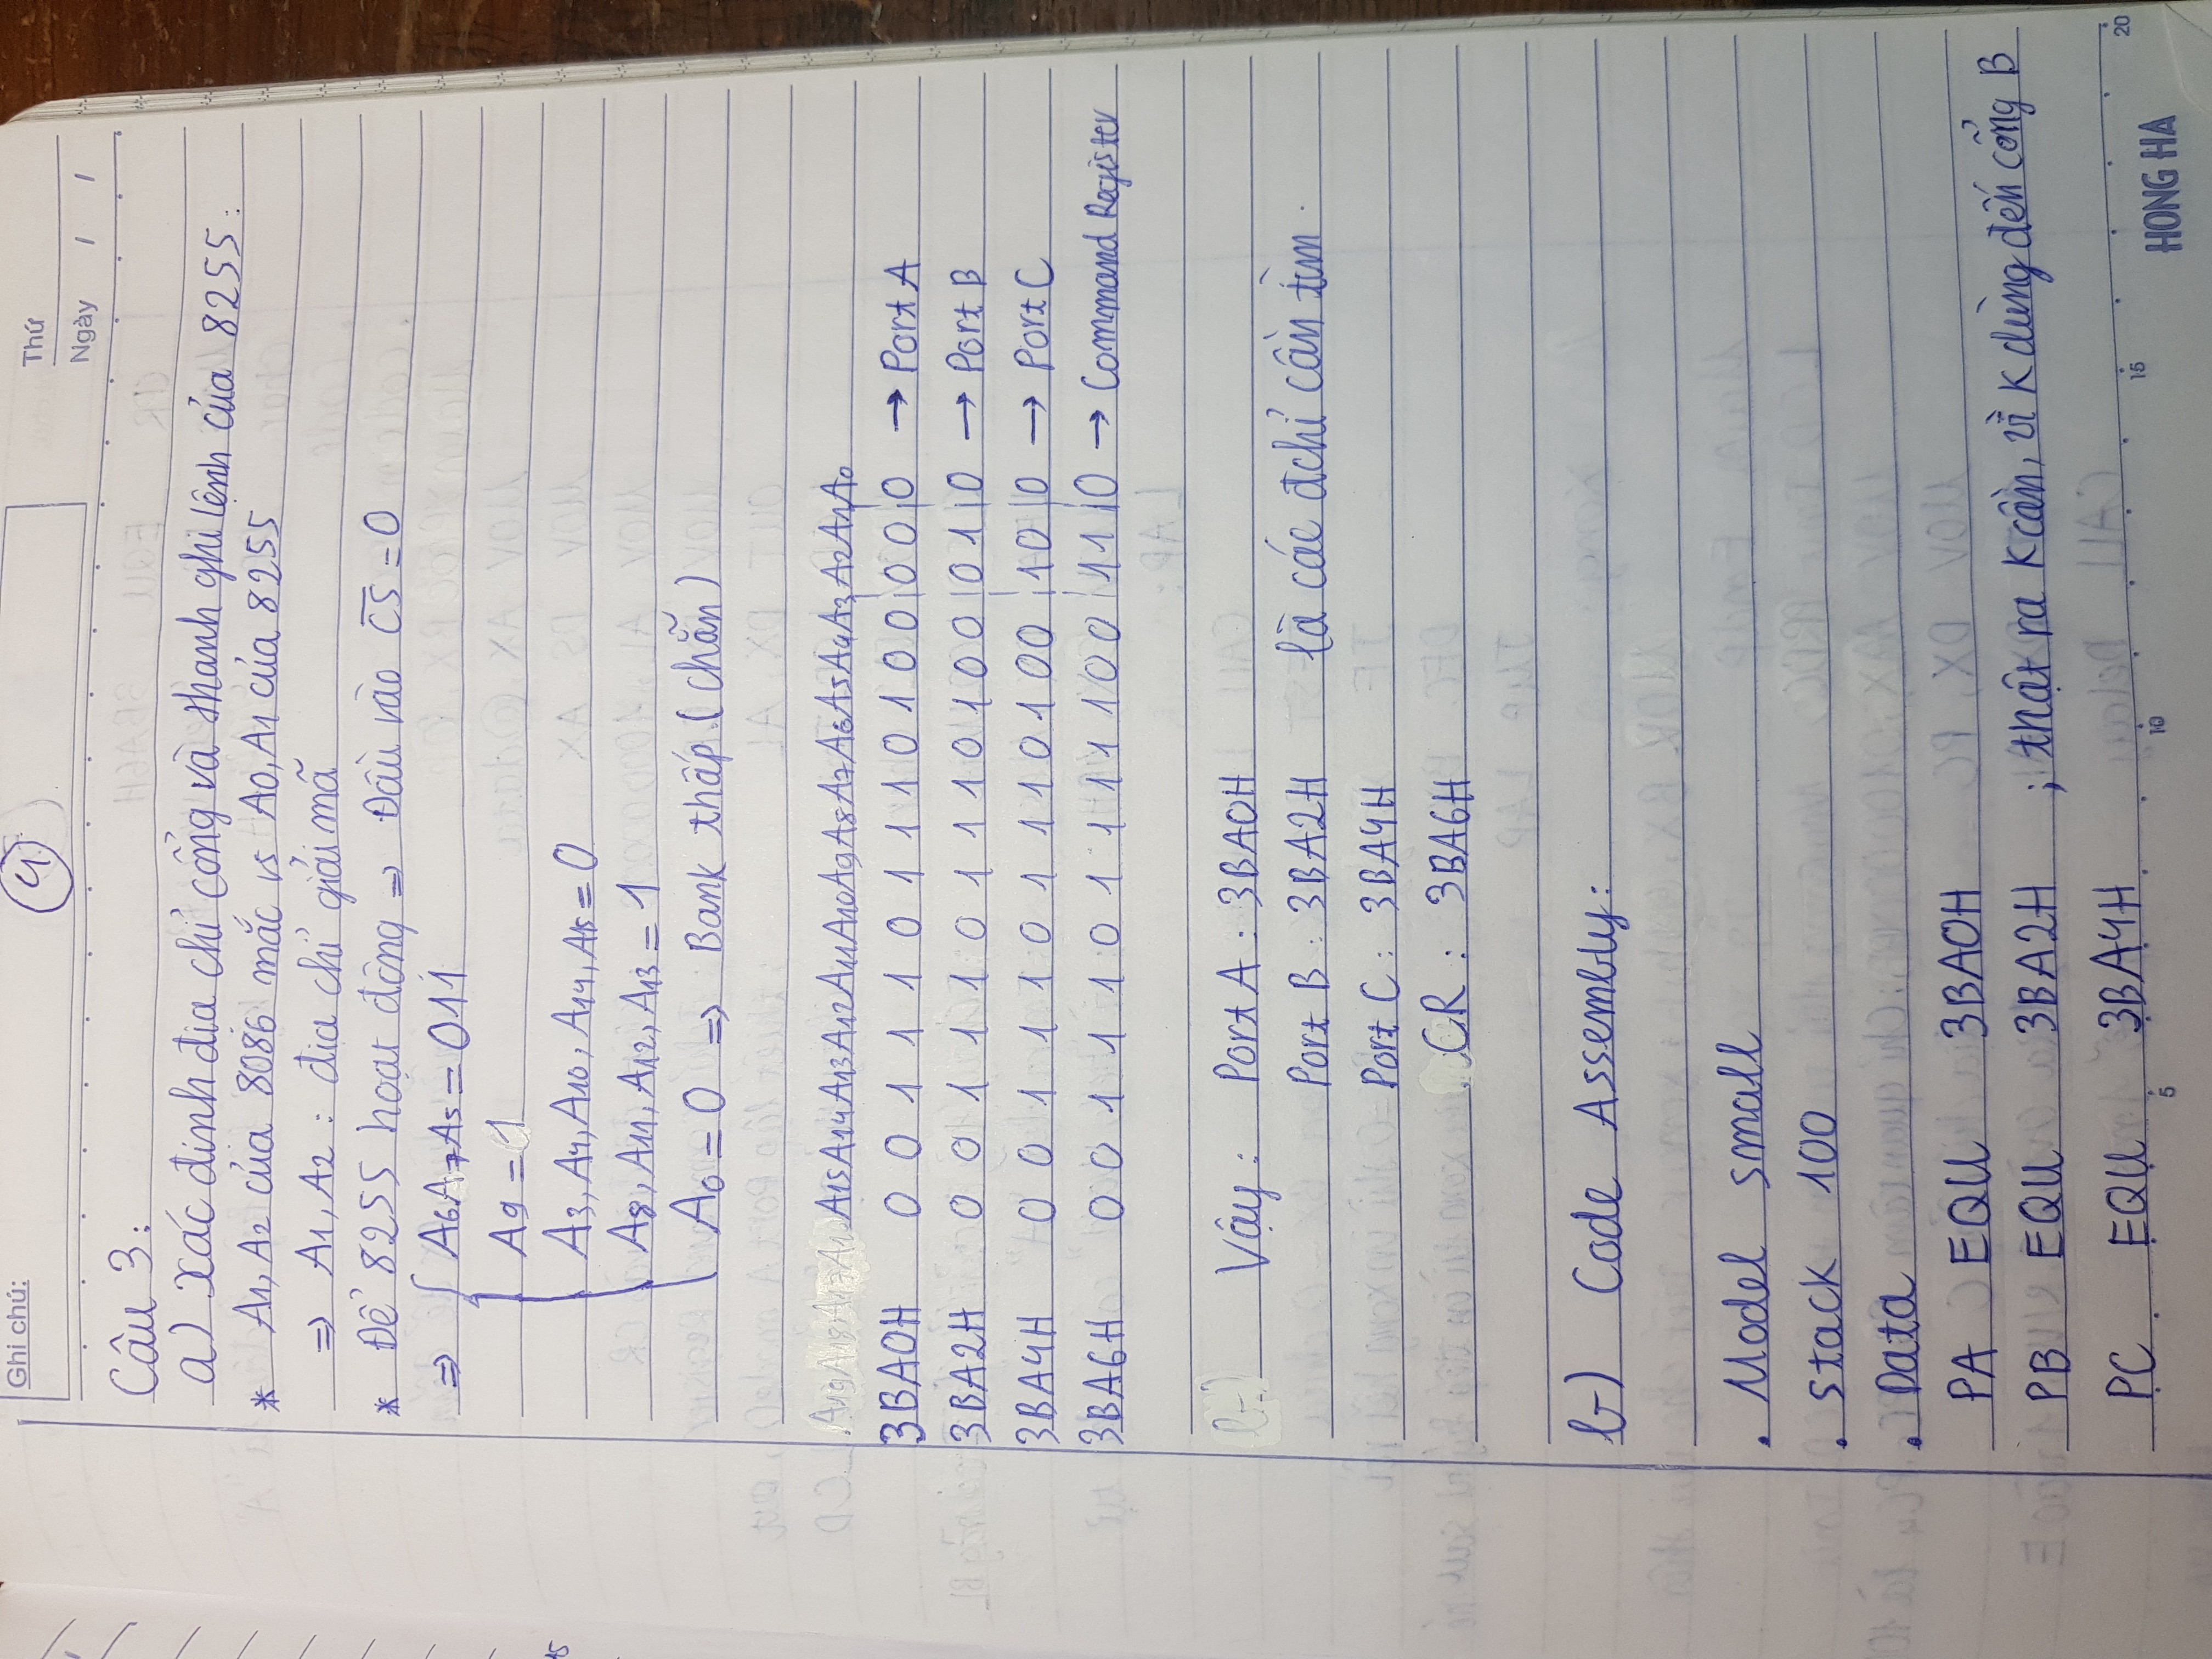 Ghi chú:
4
Thứ
Ngày / /
Câu 3:
a) Xác định địa chỉ cổng và thanh ghi lệnh của 8255:
* A1, A2 của 8086 mắc vs A0, A1 của 8255
⇒ A1, A2 : địa chỉ giải mã
* Để 8255 hoạt động ⇒ Đầu vào C̅S̅ = 0
⇒ { A6A7A5 = 011
A9 = 1
A3, A4, A10, A14, A15 = 0
A8, A11, A12, A13 = 1
A0 = 0 ⇒ Bank thấp (chẵn)
A19A18A17A1 A15A14A13A12A11A10A9A8A7A6A5A4A3 A2A1A0
3BA0H 0 0 1 1 1 0 1 1 1 0 1 0 0 | 0 0 | 0 → Port A
3BA2H 0 0 1 1 1 0 1 1 1 0 1 0 0 | 0 1 | 0 → Port B
3BA4H 0 0 1 1 1 0 1 1 1 0 1 0 0 | 1 0 | 0 → Port C
3BA6H 0 0 1 1 1 0 1 1 1 1 1 0 0 | 1 1 | 0 → Command Register
b-) Vậy : Port A : 3BA0H
Port B : 3BA2H là các đchỉ cần tìm.
Port C : 3BA4H
CR : 3BA6H
b-) Code Assembly:
. Model small
. stack 100
. Data
PA EQU 3BA0H
PB EQU 3BA2H ; thật ra K cần, vì K dùng đến cổng B
PC EQU 3BA4H
5 10 15 20
HONG HA